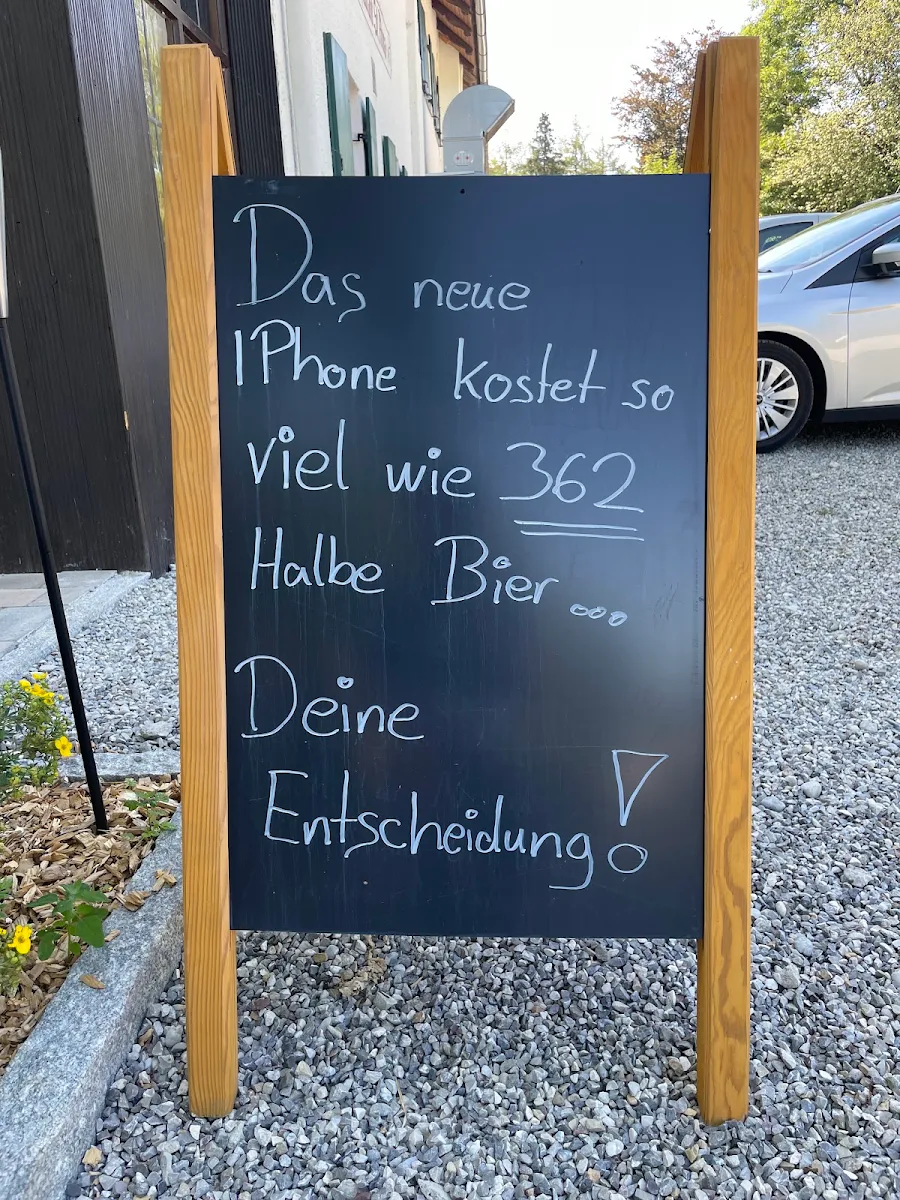 Das neue
IPhone kostet so
viel wie 362
Halbe Bier ...
Deine
Entscheidung!